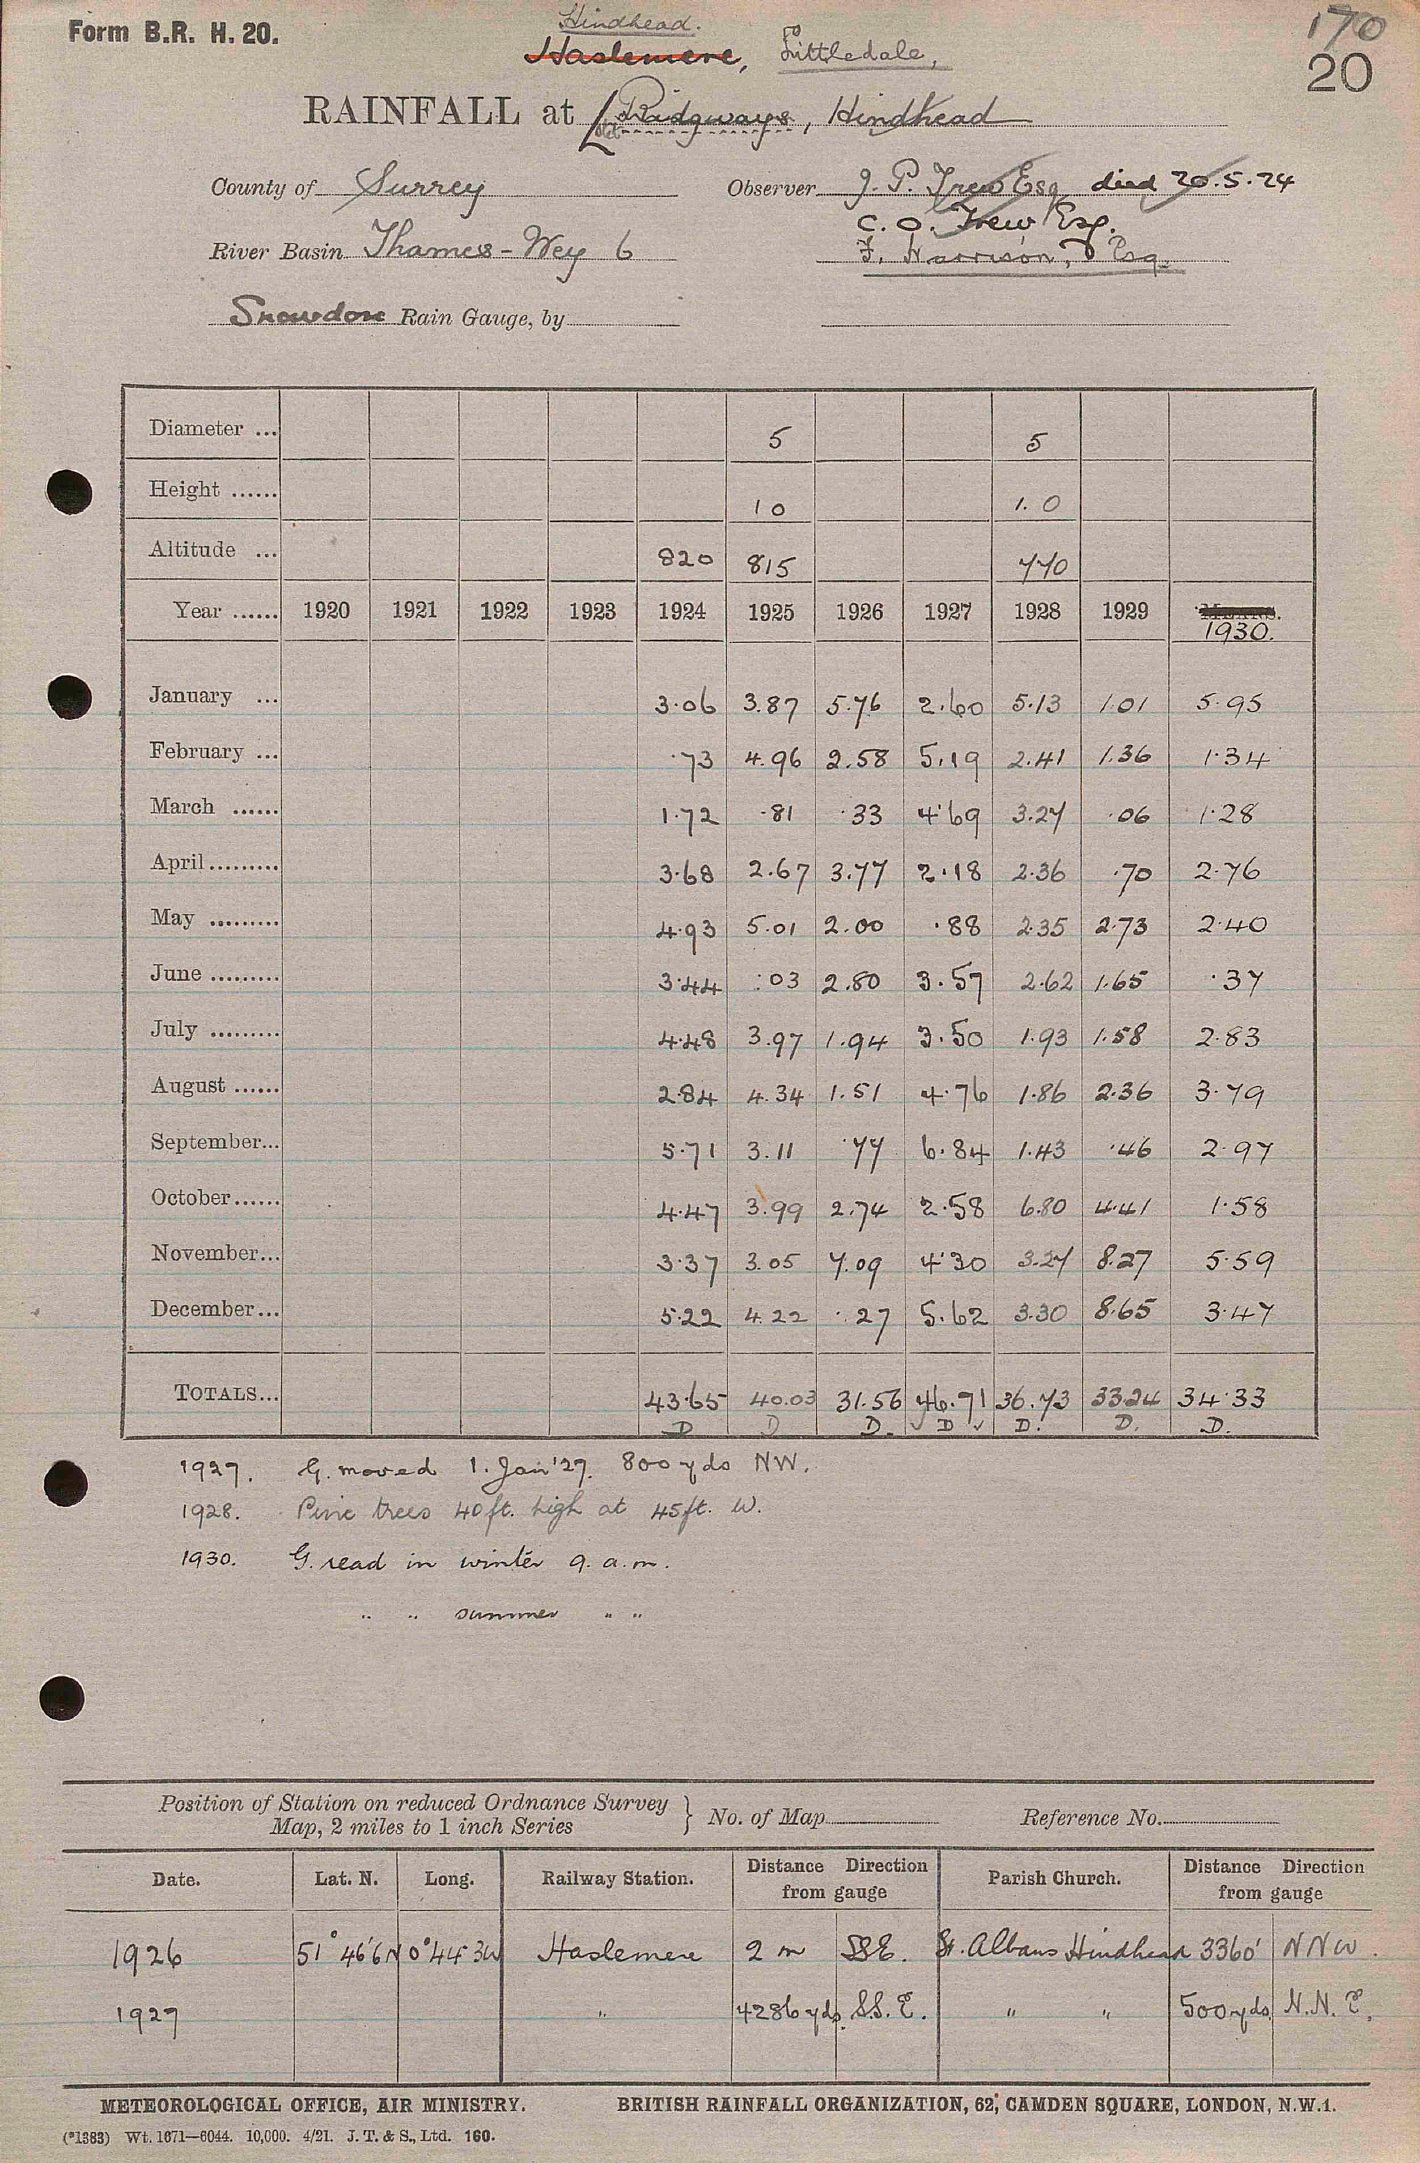 Form B.R. H. 20.
170
20
Hindhead.
Haslemere, Littledale,
RAINFALL at Ridgways, Hindhead
County of Surrey
Observer J. P. Trew Esq died 20.5.24
C. O. Trew Esq.
River Basin Thames - Wey 6
F. Harrison, Esq.
Snowdon Rain Gauge, by
Diameter ... 5 5
Height ...... 1 0 1.0
Altitude ... 820 815 770
Year ...... 1920 1921 1922 1923 1924 1925 1926 1927 1928 1929 MEANS. 1930.
January ... 3.06 3.87 5.76 2.60 5.13 1.01 5.95
February ... .73 4.96 2.58 5.19 2.41 1.36 1.34
March ...... 1.72 .81 .33 4.69 3.27 .06 1.28
April ......... 3.68 2.67 3.77 2.18 2.36 .70 2.76
May ......... 4.93 5.01 2.00 .88 2.35 2.73 2.40
June ......... 3.44 .03 2.80 3.57 2.62 1.65 .37
July ......... 4.48 3.97 1.94 3.50 1.93 1.58 2.83
August ...... 2.84 4.34 1.51 4.76 1.86 2.36 3.79
September... 5.71 3.11 .77 6.84 1.43 .46 2.97
October...... 4.47 3.99 2.74 2.58 6.80 4.41 1.58
November... 3.37 3.05 7.09 4.30 3.27 8.27 5.59
December... 5.22 4.22 .27 5.62 3.30 8.65 3.47
TOTALS... 43.65 40.03 31.56 46.71 36.73 33.24 34.33
D D D. D D. D. D.
1927. G. moved 1. Jan '27. 800 yds NW.
1928. Pine trees 40ft. high at 45ft. W.
1930. G. read in winter 9. a.m.
" " summer " "
Position of Station on reduced Ordnance Survey
Map, 2 miles to 1 inch Series
No. of Map
Reference No.
Date. Lat. N. Long. Railway Station. Distance from gauge Direction Parish Church. Distance from gauge Direction
1926 51° 46'6 N 0° 44' 3W Haslemere 2 m SSE. St. Albans Hindhead 3360' NNW.
1927 " 4286 yds. S.S.E. " " 500 yds. N.N.E.
METEOROLOGICAL OFFICE, AIR MINISTRY.
BRITISH RAINFALL ORGANIZATION, 62, CAMDEN SQUARE, LONDON, N.W.1.
(*1383) Wt. 1671—6044. 10,000. 4/21. J. T. & S., Ltd. 160.